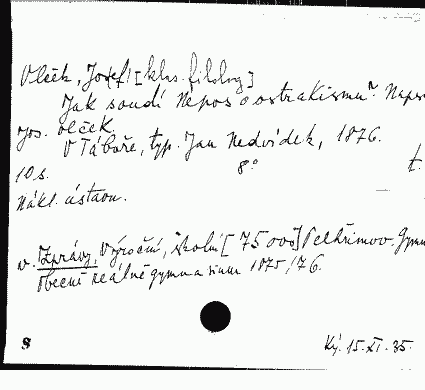 Vlček, Josef [klas. filolog]
Jak soudí Nepos o ostrakismu? Napsal
Jos. Vlček
V Táboře, typ. Jan Nedvídek, 1876.
10 s. 8° t.
Nákl. ústavu.
v. Zprávy, Výroční, školní [75 000] Pelhřimov. Gymn
Obecní reálné gymnasium 1875/76.
S Ký. 15.XI.35.